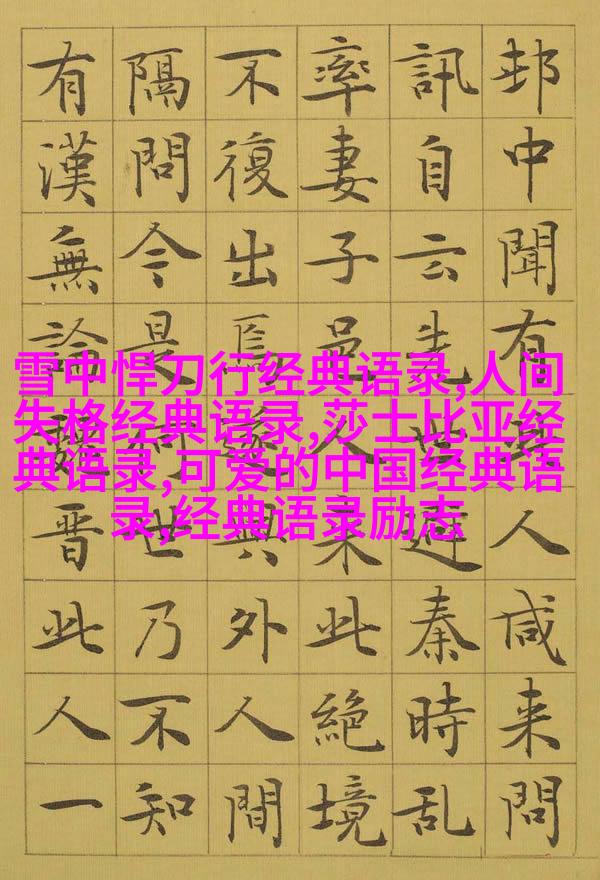 邨中聞有此人咸来問
訊自云先世避秦時乱
率妻子邑人来此絶境
不復出焉遂與外人間
隔問今是何世乃不知
有漢無論魏晋此人一
雪中悍刀行经典语录,人间
失格经典语录,莎士比亚经
典语录,可爱的中国经典语
录,经典语录励志